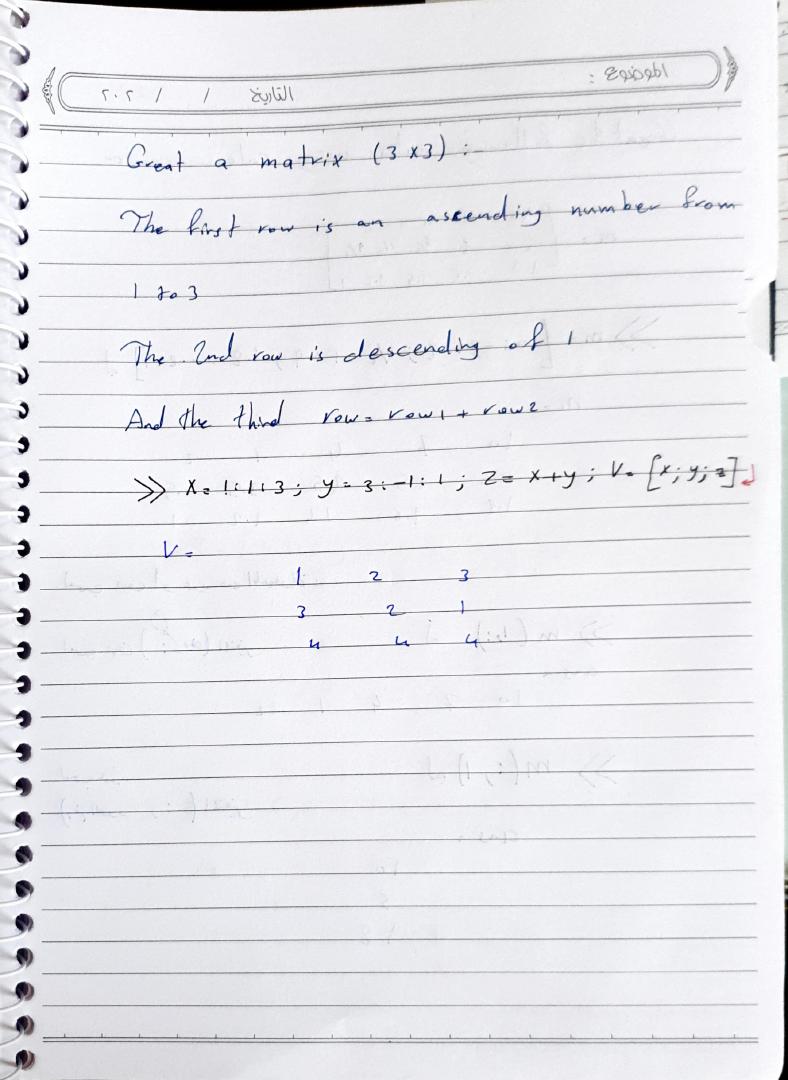 الموضوع :
التاريخ / / ٢٠٢
Great a matrix (3 x3) :
The first row is an ascending number from
1 to 3
The 2nd row is descending of 1
And the third row = row1 + row2
>> x=1:1:3; y=3:-1:1; z=x+y; V=[x;y;z]
V=
1 2 3
3 2 1
4 4 4